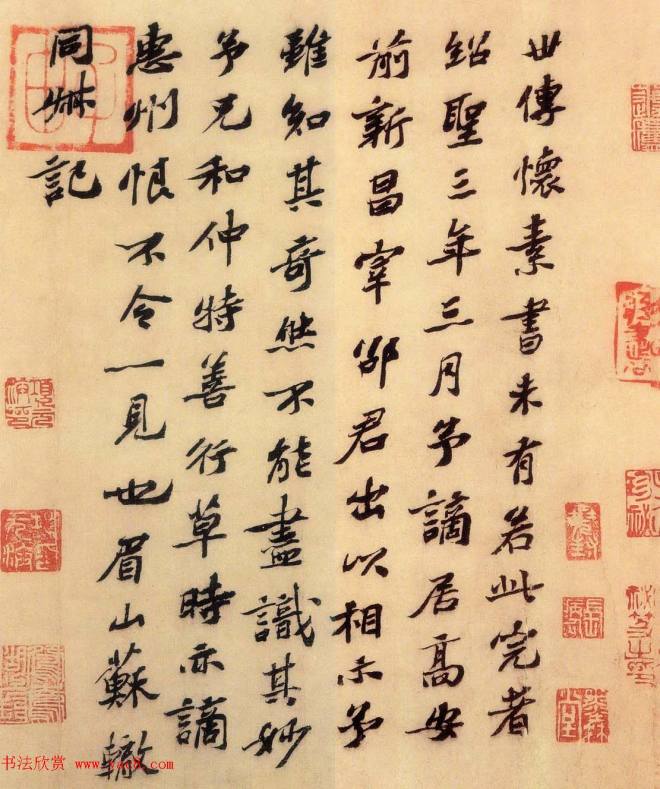 世傳懷素書未有若此完者
紹聖三年三月予謫居高安
前新昌宰邵君出以相示予
雖知其奇然不能盡識其妙
予兄和仲特善行草時亦謫
惠州恨不令一見也眉山蘇轍
同叔記
书法欣赏 www.yac8.com